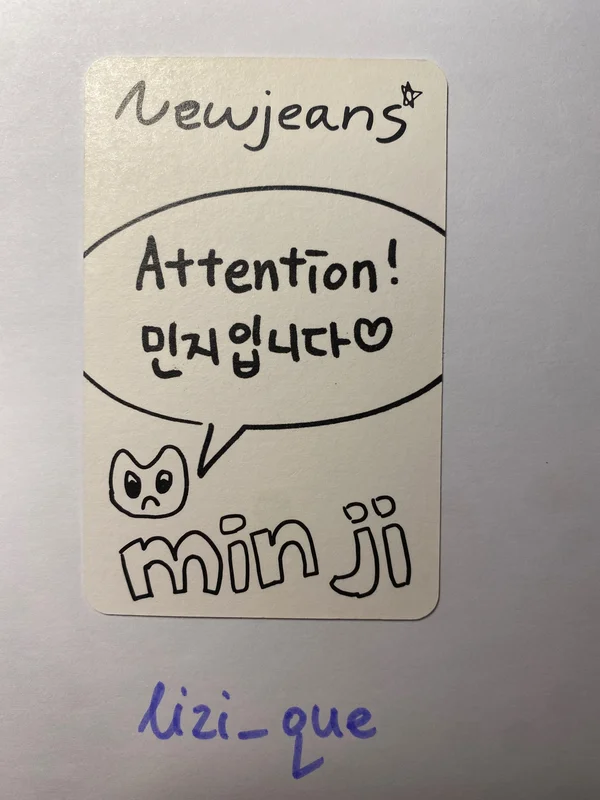 Newjeans
Attention!
민지입니다♡
minji
lizi_que